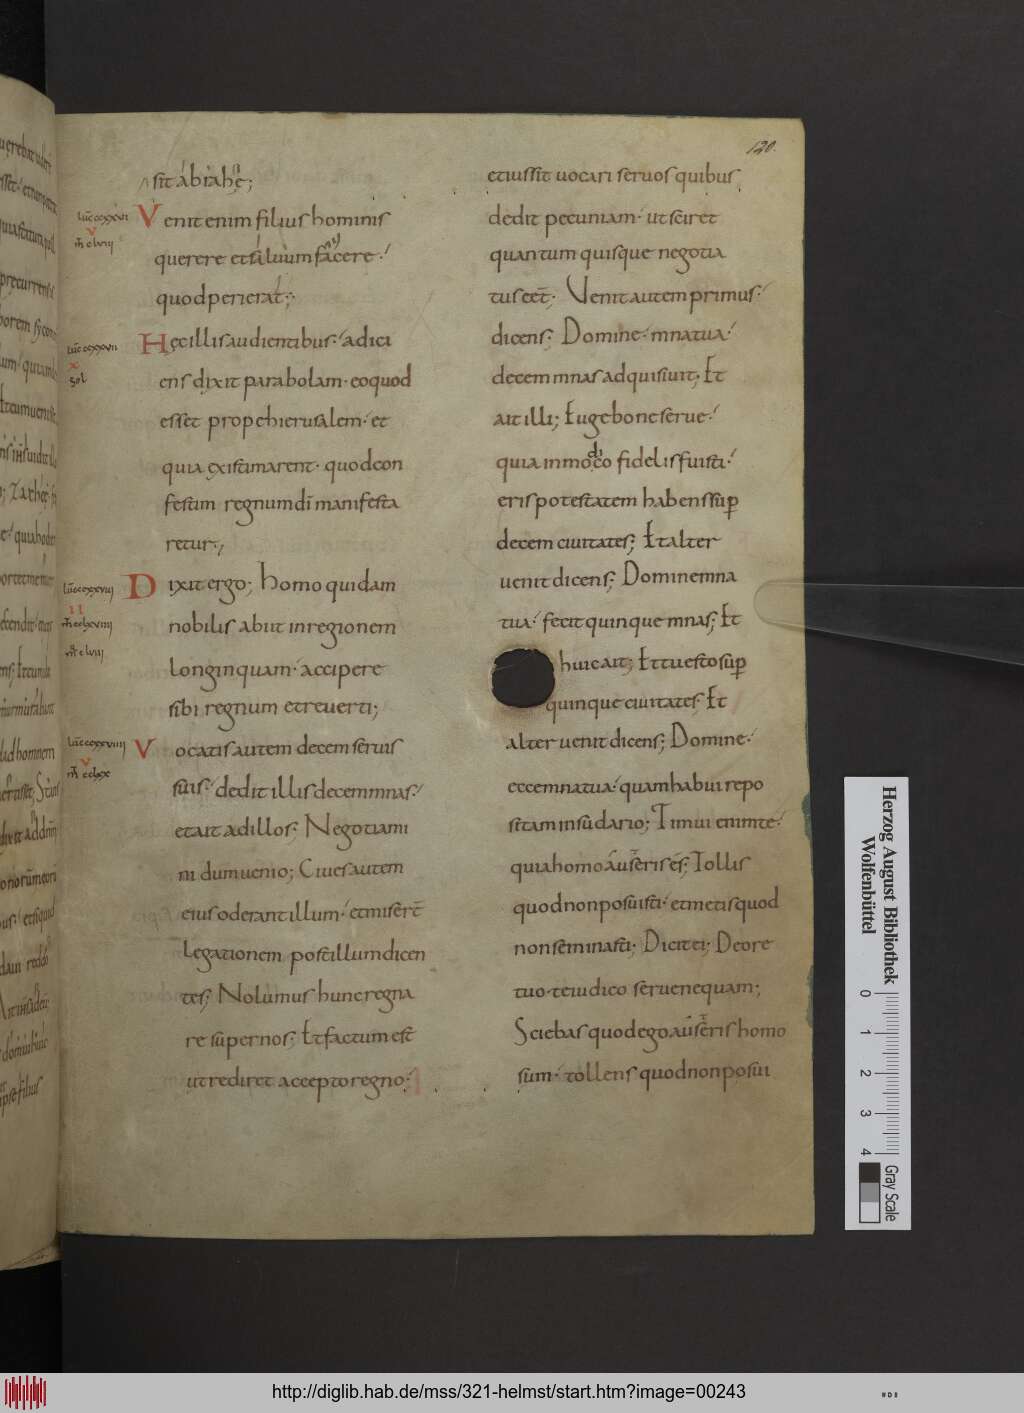 120.
sit abrahę;
Luc ccxxvi
v
mt clviii
Venit enim filius hominis
querere et saluum facere
quod perierat;
Luc ccxxvii
x
sol
Hęc illis audientibus adici
ens dixit parabolam· eo quod
esset prope hierusalem et
quia exis timarent· quod con
festim regnum dī manifesta
retur;
Luc ccxxviii
II
mt cclxviiii
mr clviii
Dixit ergo; homo quidam
nobilis abiit in regionem
longinquam· accipere
sibi regnum et reuerti;
Luc ccxxviiii
v
mt cclxx
Vocatis autem decem seruis
suis dedit illis decem mnas
et ait ad illos; Negotiami
ni dum uenio; Ciues autem
eius oderant illum et miserт̄
legationem post illum dicen
tes; Nolumus hunc regna
re super nos; Et factum est
ut rediret accepto regno
et iussit uocari seruos quibus
dedit pecuniam· ut sciret
quantum quisque negotia
tus eēt; Venit autem primus
dicens; Domine mna tua
decem mnas adquisiuit; Et
ait illi; Euge bone serue
quia in modico fidelis fuisti
eris potestatem habens sup̄
decem ciuitates; Et alter
uenit dicens; Domine mna
tua fecit quinque mnas; Et
huic ait; Et tu esto sup̄
quinque ciuitates; Et
alter uenit dicens; Domine
ecce mna tua quam habui repo
sitam in sudario; Timui enim te
quia homo austeris es; Tollis
quod non posuisti et metis quod
non seminasti; Dicit ei; De ore
tuo te iudico serue nequam;
Sciebas quod ego austeris homo
sum tollens quod non posui
Herzog August Bibliothek
Wolfenbüttel
0 1 2 3 4
Gray Scale
http://diglib.hab.de/mss/321-helmst/start.htm?image=00243